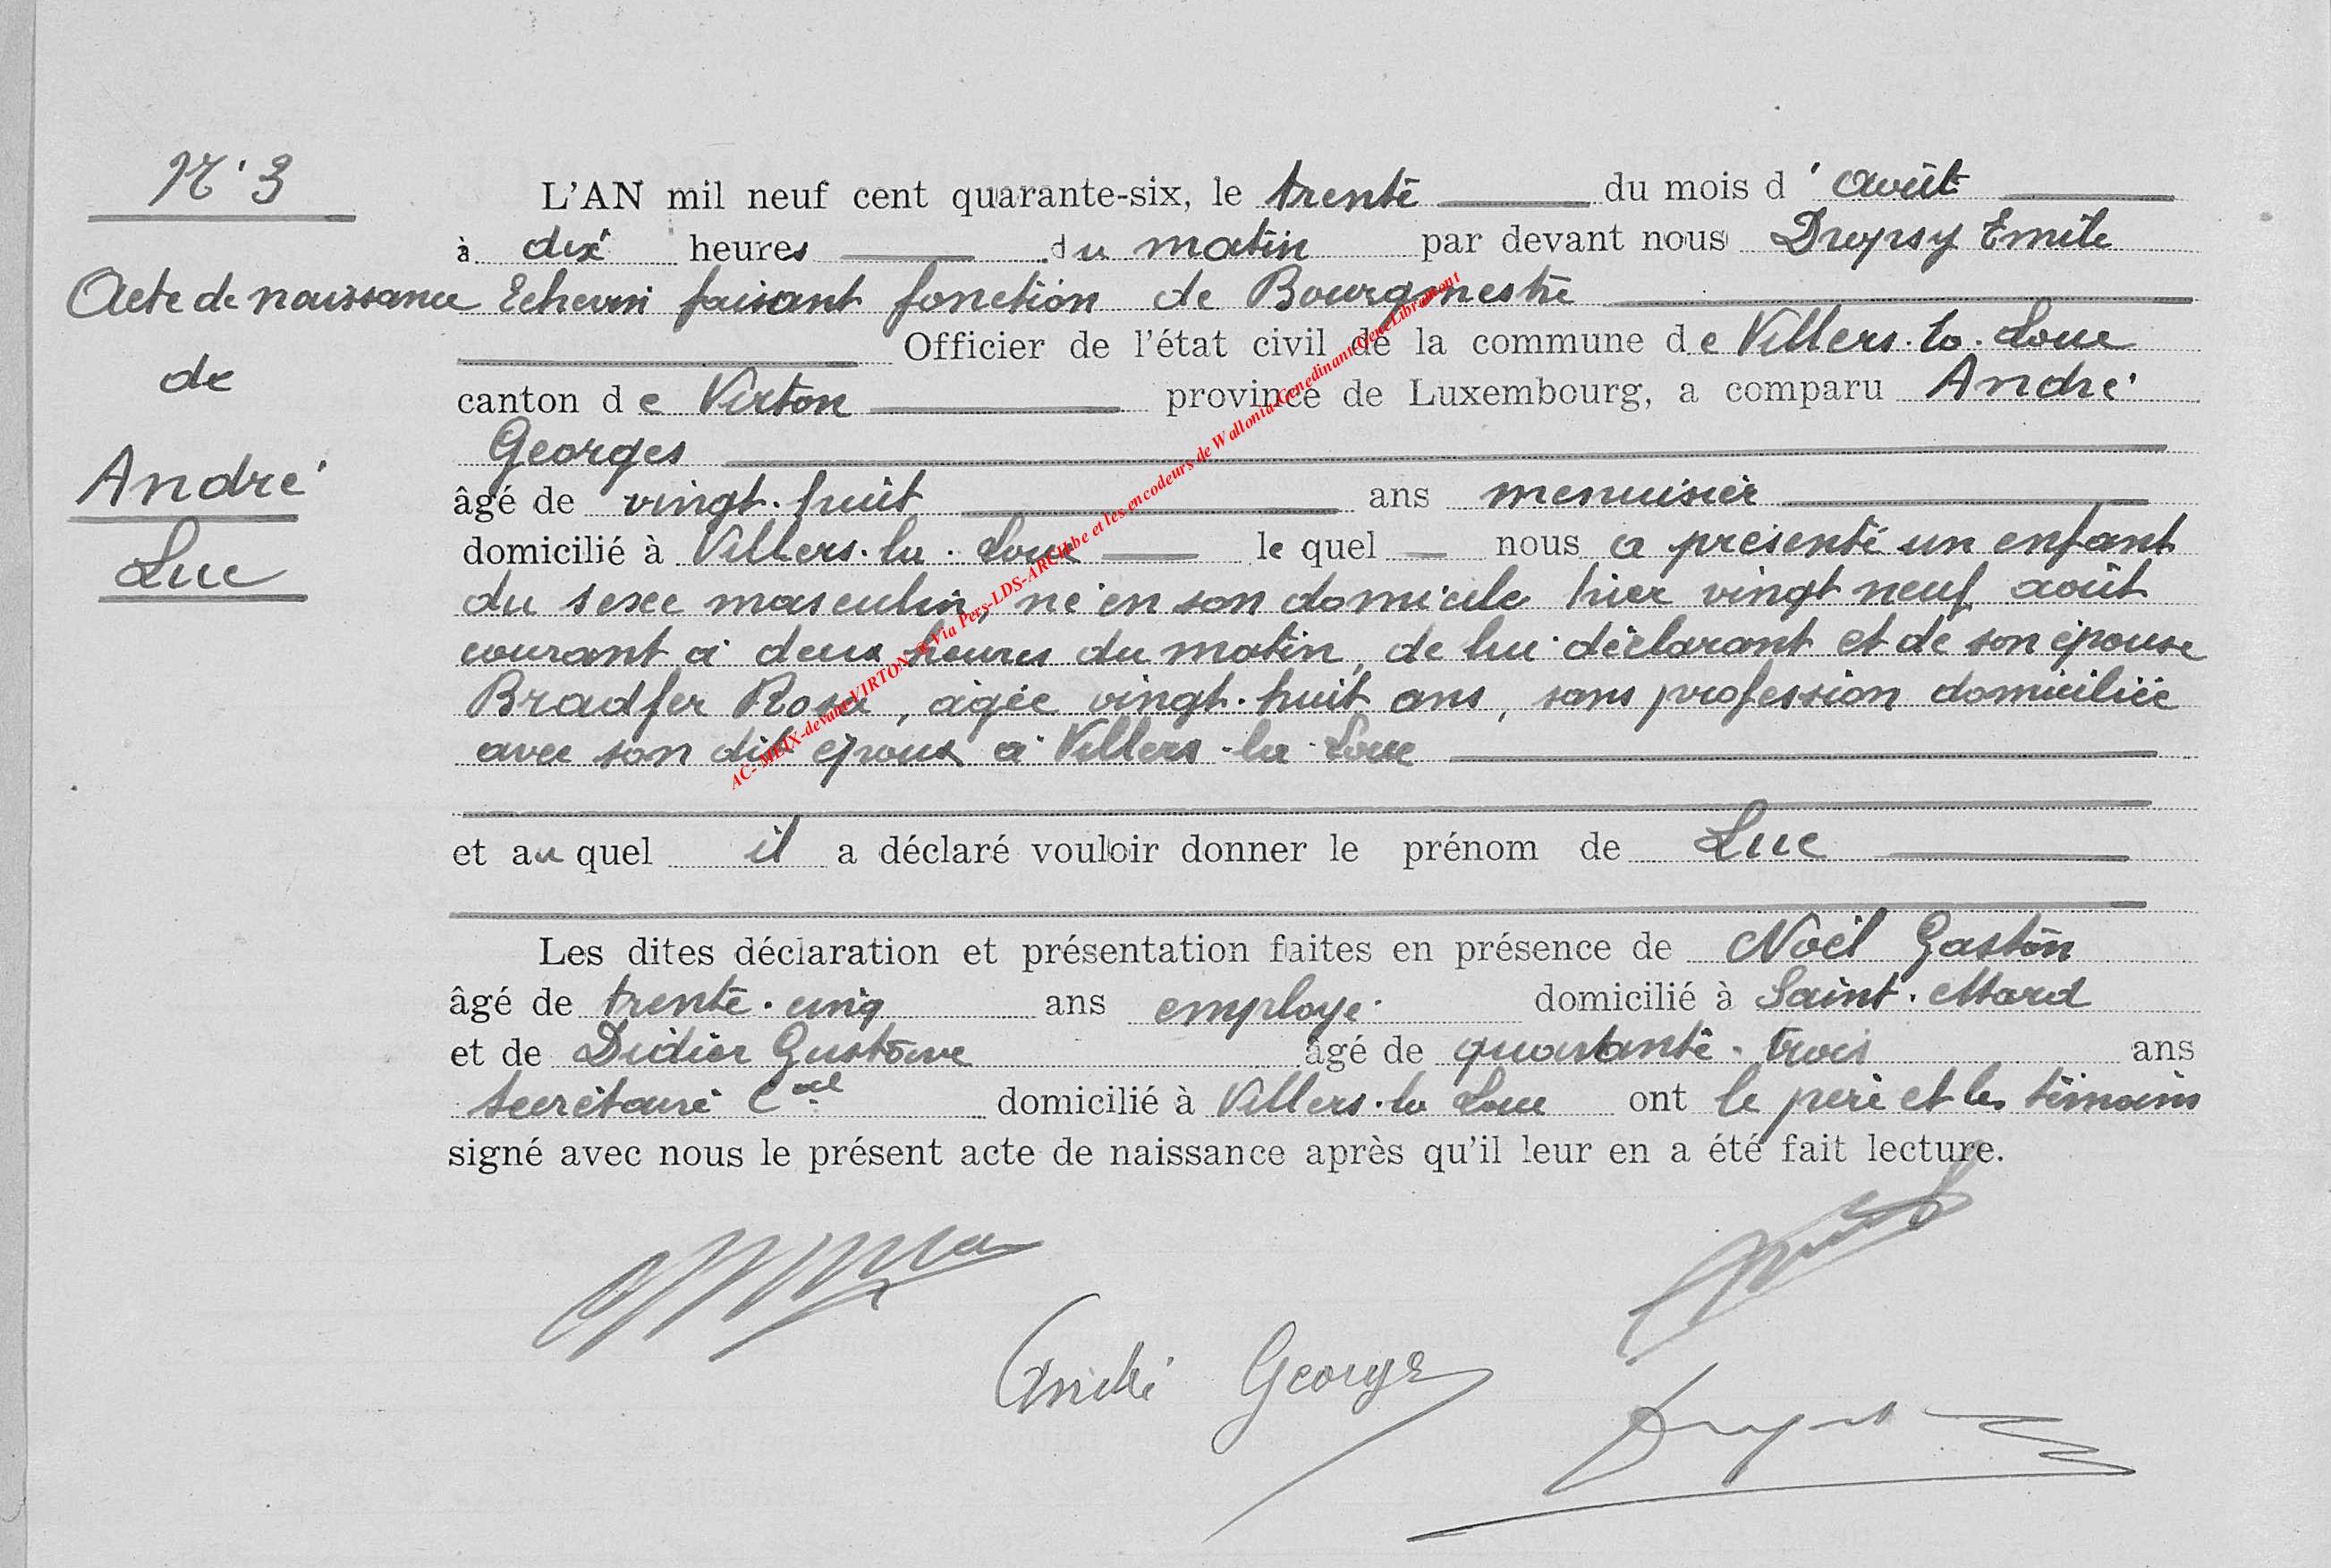 N° 3
Acte de naissance
de
André
Luc
L'AN mil neuf cent quarante-six, le trente du mois d'août
à dix heures du matin par devant nous Dropsy Emile
Echevin faisant fonction de Bourgmestre
Officier de l'état civil de la commune de Villers-la-Loue
canton de Virton province de Luxembourg, a comparu André
Georges
âgé de vingt-huit ans menuisier
domicilié à Villers-la-Loue lequel nous a présenté un enfant
du sexe masculin, né en son domicile hier vingt neuf août
courant à deux heures du matin, de lui déclarant et de son épouse
Bradfer Rosa, agée vingt-huit ans, sans profession domiciliée
avec son dit époux à Villers-la-Loue
et auquel il a déclaré vouloir donner le prénom de Luc
Les dites déclaration et présentation faites en présence de Noël Gaston
âgé de trente-cinq ans employé domicilié à Saint-Mard
et de Didier Gustave âgé de quarante-trois ans
secrétaire Cal domicilié à Villers-la Loue ont le père et les témoins
signé avec nous le présent acte de naissance après qu'il leur en a été fait lecture.
André Georges
AC-MEIX-devant-VIRTON Via Pers-LDS-ARCH.be et les encodeurs de Wallonia-Genedinant-GeneLibramont